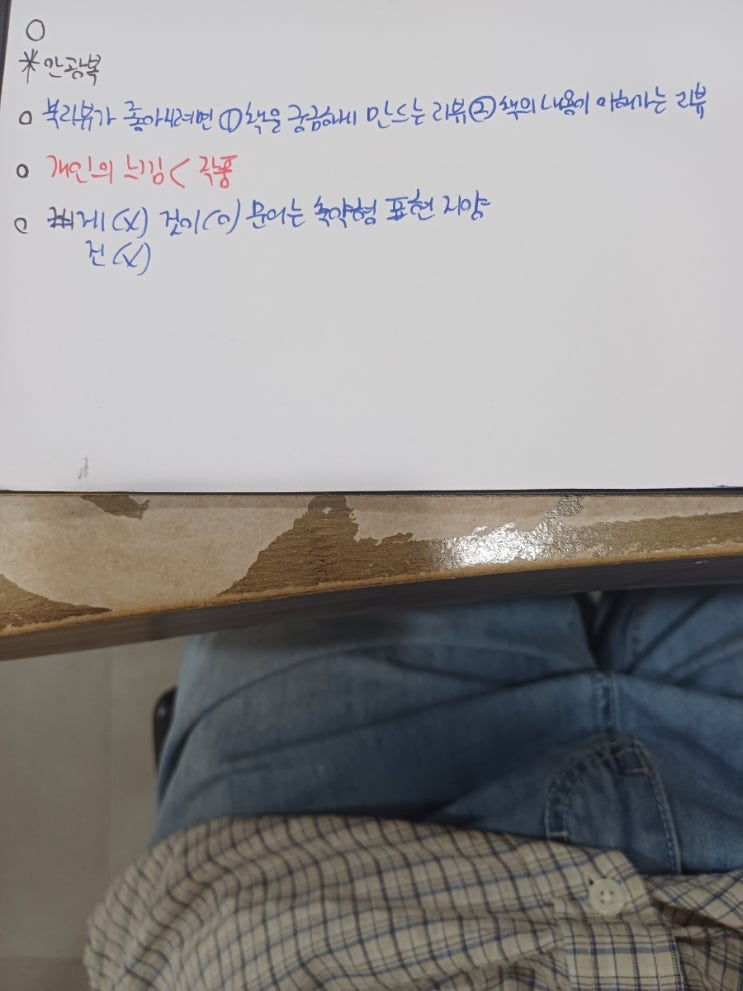 ○
*안광복
○ 북리뷰가 좋아지려면 ① 책을 궁금하게 만드는 리뷰 ② 책의 내용이 이해가는 리뷰
○ 개인의 느낌 < 작품
○ 게(X) 것이(O) 문어는 축약형 표현 지양
건(X)